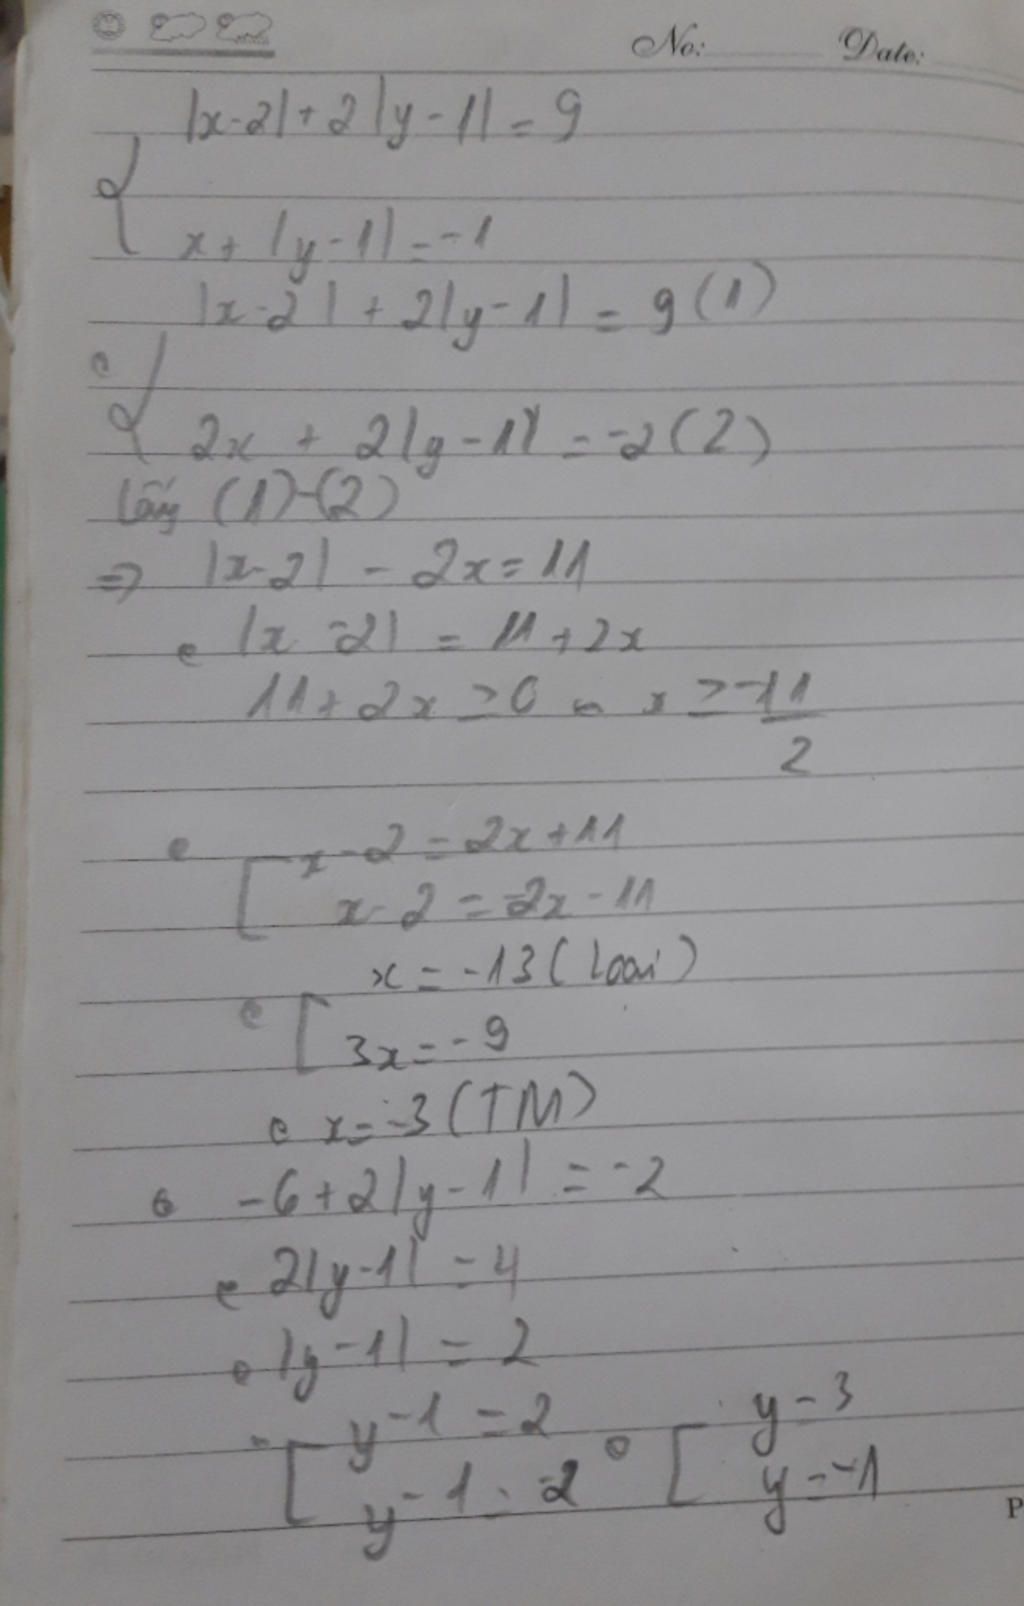 No: Date:
|x-2|+2|y-1|=9
{
x+|y-1|=-1
|x-2|+2|y-1|=9(1)
{
2x+2|y-1|=-2(2)
lấy (1)-(2)
=> |x-2|-2x=11
|x-2|=11+2x
11+2x≥0 x≥-11/2
x-2=2x+11
[
x-2=-2x-11
x=-13(loại)
[
3x=-9
x=-3(TM)
-6+2|y-1|=-2
2|y-1|=4
|y-1|=2
y-1=2 y=3
[ [
y-1=-2 y=-1
P